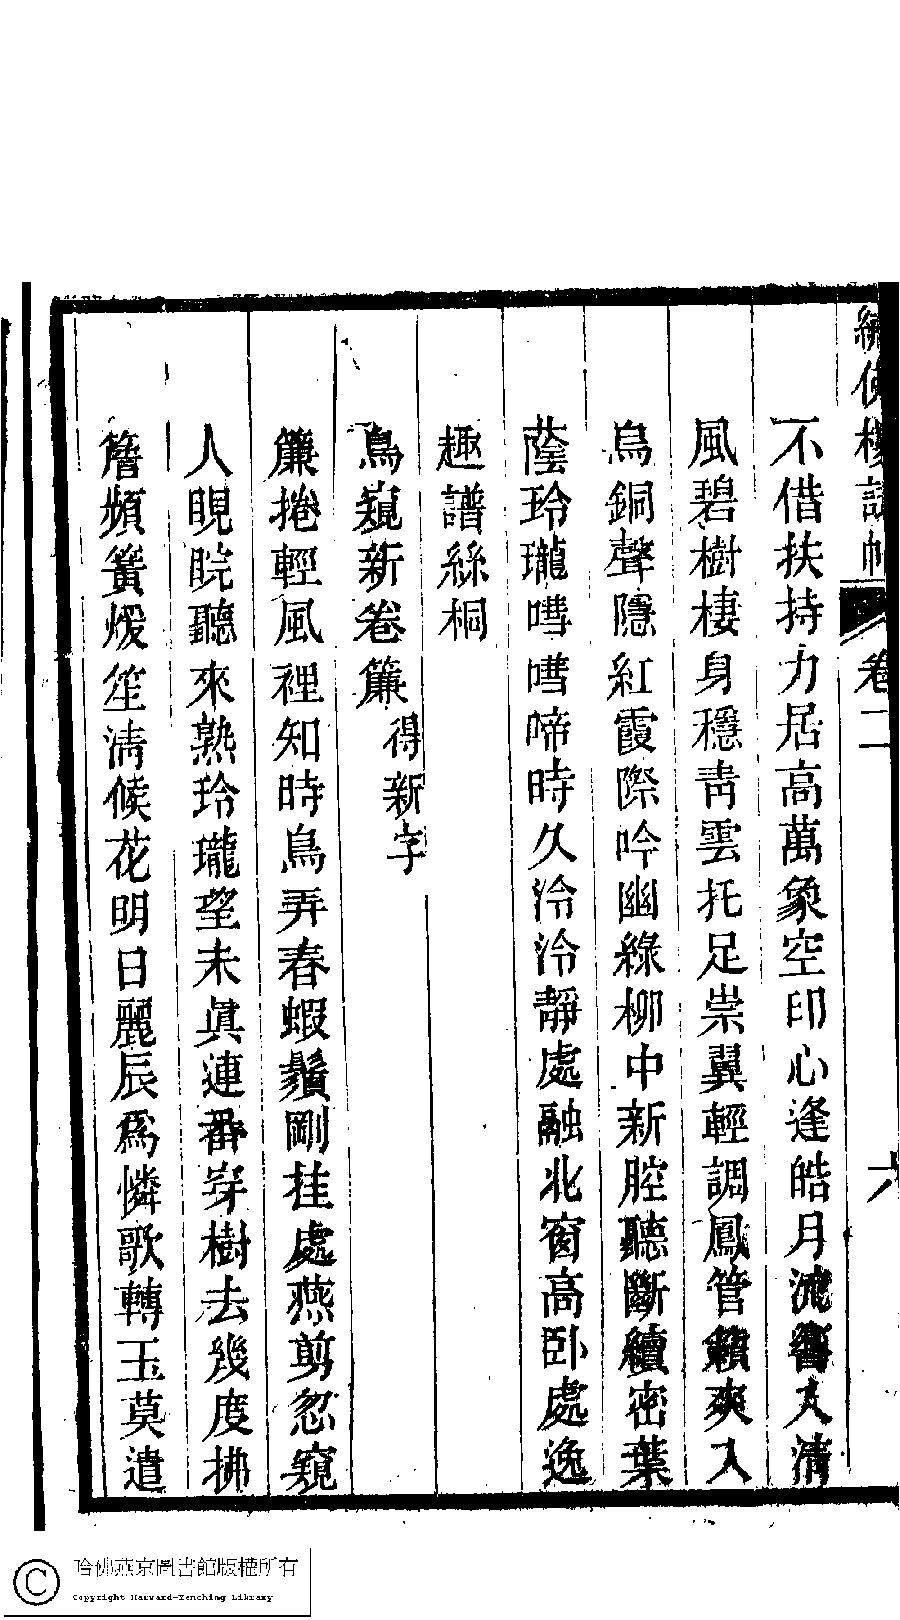 繡佛樓詩帖 卷二 六
不借扶持力居高萬象空印心逢皓月流響入清
風碧樹棲身穩靑雲托足崇翼輕調鳳管籟爽入
烏銅聲隱紅霞際吟幽綠柳中新腔聽斷續密葉
蔭玲瓏嘒嘒啼時久泠泠靜處融北窗高卧處逸
趣譜絲桐
鳥窺新卷簾 得新字
簾捲輕風裡知時鳥弄春蝦鬚剛挂處燕剪忽窺
人睍睆聽來熟玲瓏望未眞連番穿樹去幾度拂
簷頻簧煖笙淸候花明日麗辰爲憐歌轉玉莫遣
哈佛燕京圖書館版權所有
Copyright Harvard-Yenching Library